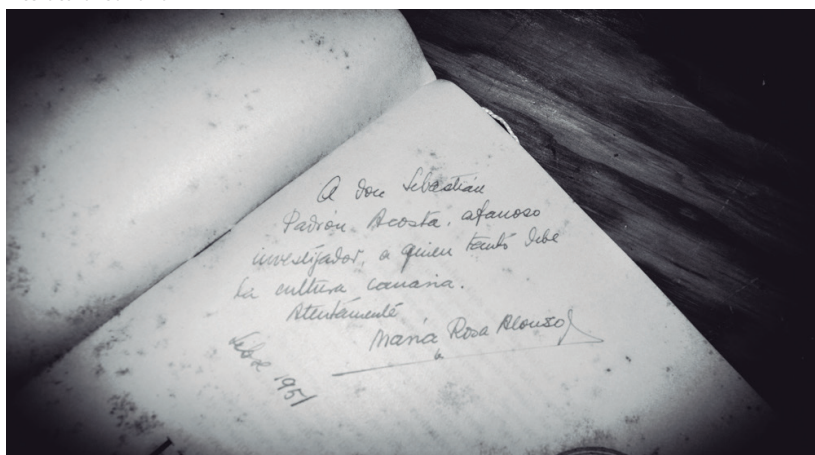 A don Sebastián
Padrón Acosta, afanoso
investigador, a quien tanto debe
la cultura canaria.
Atentamente
María Rosa Alonso
1951